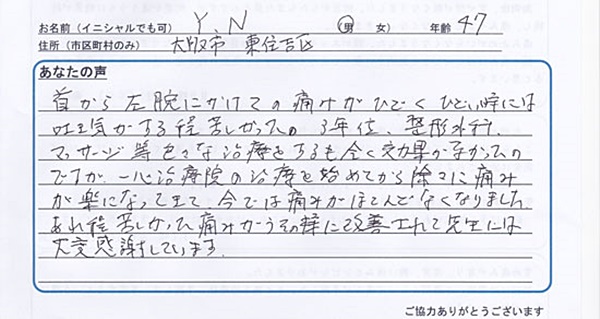 お名前（イニシャルでも可） Y.N （男 女） 年齢 47
住所（市区町村のみ） 大阪市 東住吉区
あなたの声
首から左腕にかけての痛みがひどくひどい時には
吐き気がする程苦しかったの 3年位、整形外科、
マッサージ等色々な治療をするも全く効果がなかったの
ですが、一心治療院の治療を始めてから除々に痛み
が楽になってきて、今では痛みがほとんどなくなりました
あれ程苦しかった痛みがうその様に改善されて先生には
大変感謝しています。
ご協力ありがとうございます